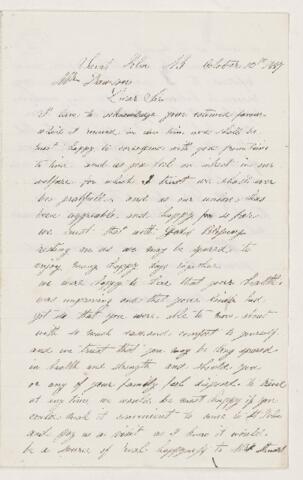 Saint John N.B October 10th 18
Mr
Dear Sir
I have to acknowledge your esteemed favour
which I received in due time and shall be
most happy to correspond with you from time
to time and as you feel an interest in our
welfare for which I trust we shall ever
be gratefull and as our union has
been agreeable and happy so far
we trust that with God's Blessing
resting on us we may be spared to
enjoy many happy days together
we were happy to hear that your health
was improving and that your had
got so that you were able to move about
with so much ease and comfort to yourself
and we trust that you may be long spared
in health and strength and should you
or any of your family feel disposed to travel
at any time we would be most happy if you
could make it convenient to come to St John
and pay us a visit as I know it would
be a source of real happiness to Mrs